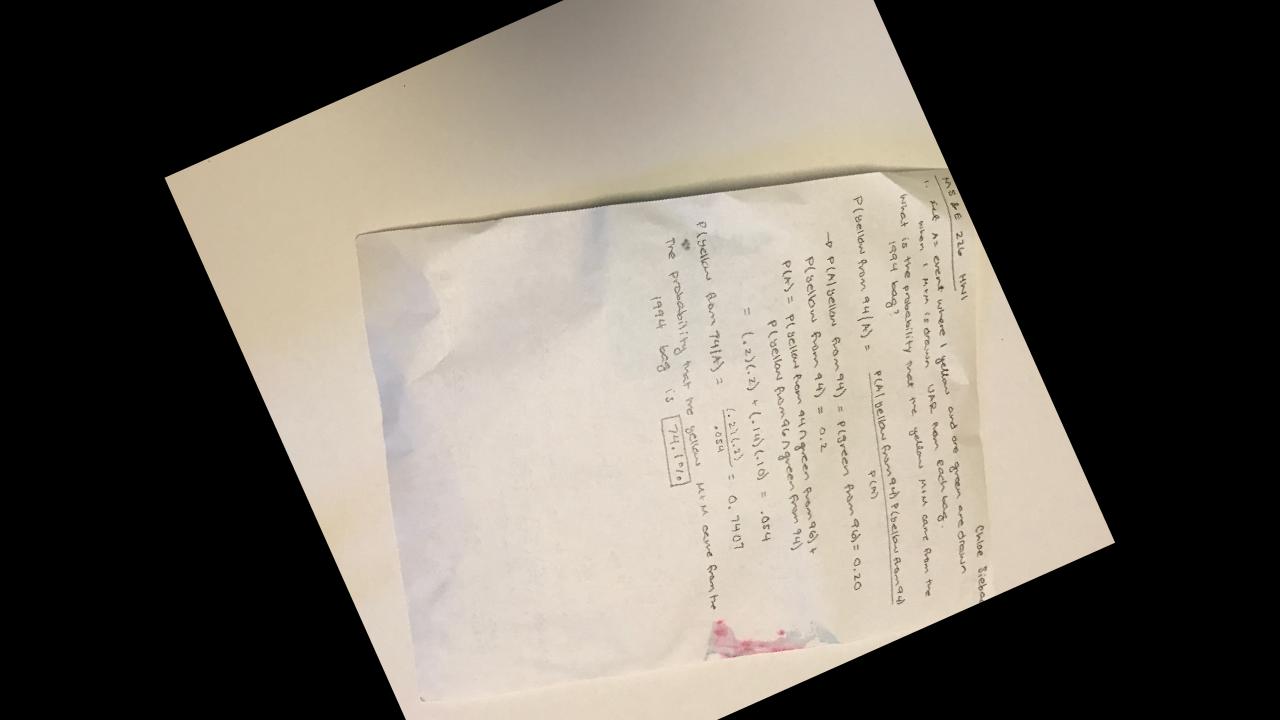 Chloe
MS&E 226 HW1
1. Let A = event where 1 yellow and one green are drawn
when 1 M+M is drawn UAR from each bag.
What is the probability that the yellow M+M came from the
1994 bag?
P(yellow from 94|A) = P(A|yellow from 94) P(yellow from 94)
P(A)
→ P(A|yellow from 94) = P(green from 96) = 0.20
P(yellow from 94) = 0.2
P(A) = P(yellow from 94 ∩ green from 96) +
P(yellow from 96 ∩ green from 94)
= (.2)(.2) + (.14)(.10) = .054
P(yellow from 94|A) = (.2)(.2) = 0.7407
.054
The probability that the yellow M+M came from the
1994 bag is 74.1%